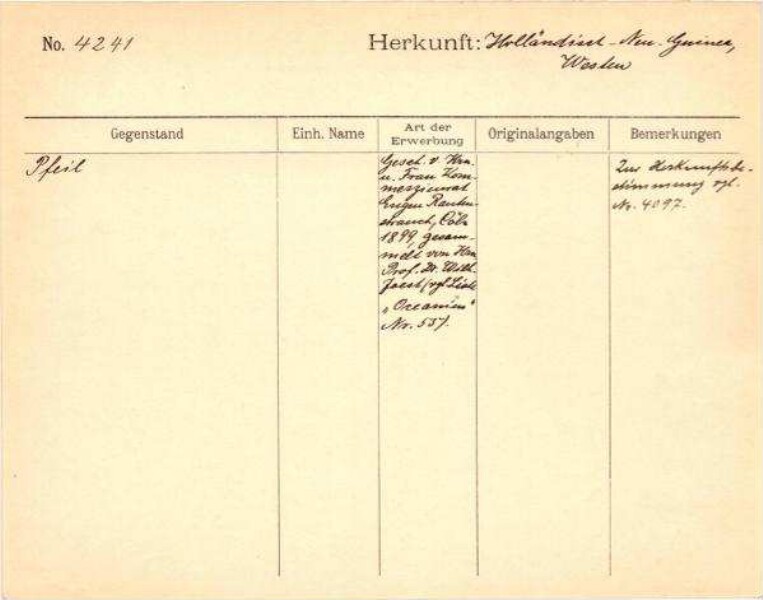 No. 4241
Herkunft: Holländisch-Neu-Guinea,
Westen
Gegenstand
Einh. Name
Art der
Erwerbung
Originalangaben
Bemerkungen
Pfeil
Gesch. v. Hrn.
u. Frau Kom-
merzienrat
Eugen Rauten-
strauch, Cöln
1899, gesam-
melt von Hrn.
Prof. Dr. Wilh.
Joest (vgl. Liste
„Ozeanien“
Nr. 557.
Zur Herkunftsbe-
stimmung vgl.
Nr. 4097.